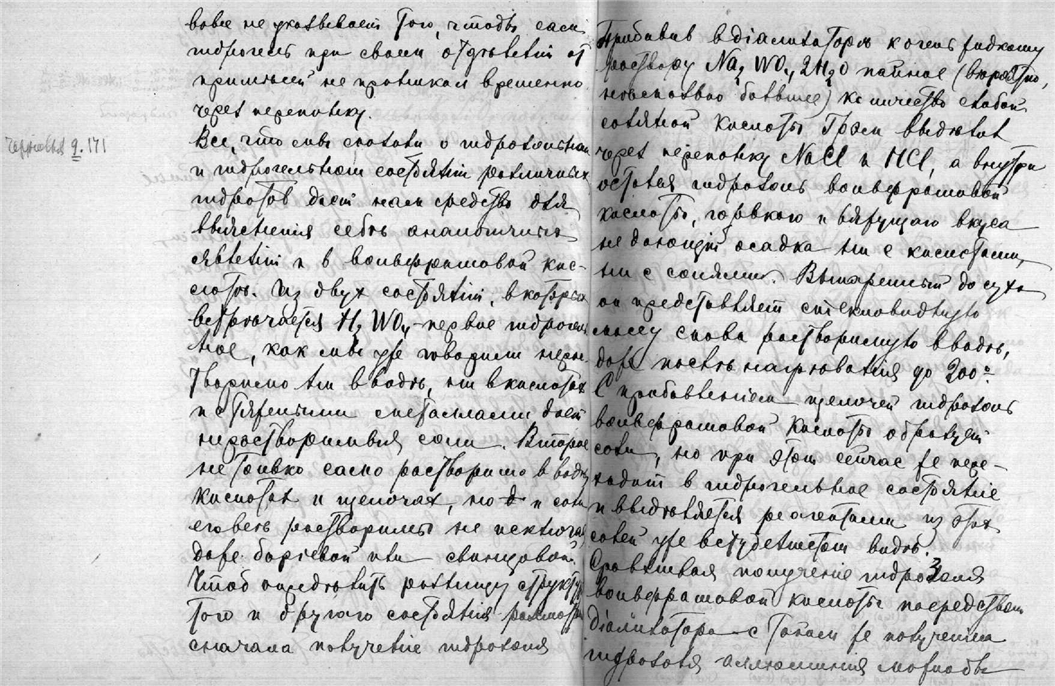 вовсе не указываетъ того, чтобы сами
гидрогель при своемъ отдѣленіи отъ
примѣсей не проникалъ временно
черезъ перепонку.
черновыя 9.171
Все, что мы сказали о гидрозольномъ
и гидрогельномъ состояніи различныхъ
гидратовъ даетъ намъ средство для
выясненія себѣ аналогичныхъ
явленій и в вольфрамовой кис-
лотѣ. Из двух состояній, в которыхъ
встрѣчается H2 WO4 - первое гидрогель-
ное, какъ мы уже говорили нераст-
творимо ни в водѣ, ни в кислотахъ
и с тяжелыми металлами даетъ
нерастворимыя соли. Второе
не только само растворимо в водѣ
кислотах и щелочах, но и соли
его всѣ растворимы не исключая
даже баріевой или свинцовой.
Чтоб опредѣлить разницу структуры
того и другаго состоянія разсмотримъ
сначала полученіе гидрозоля
Прибавив в діализаторъ к очень жидкому
раствору Na2 WO4 2H2O пайное (вѣроятно,
нѣсколько большее) количество слабой
соляной кислоты Грэм выдѣлил
через перепонку NaCl и HCl, а внутри
остался гидрозоль вольфрамовой
кислоты, горькаго и вяжущаго вкуса
не дающій осадка ни с кислотами,
ни с солями. Выпаренный до суха
он представляетъ стекловидную
массу снова растворимую в водѣ,
даже послѣ нагрѣванія до 200°.
С прибавленіемъ щелочей гидрозоль
вольфрамовой кислоты образуетъ
соли, но при этомъ сейчас же пере-
ходитъ в гидрогельное состояніе
и выдѣляется реагентами из этихъ
солей уже в студенистомъ видѣ.
Сравнивая полученіе гидрозоля
вольфрамовой кислоты посредствомъ
діализатора с таким же полученіем
гидрозоля аллюминія можно бы